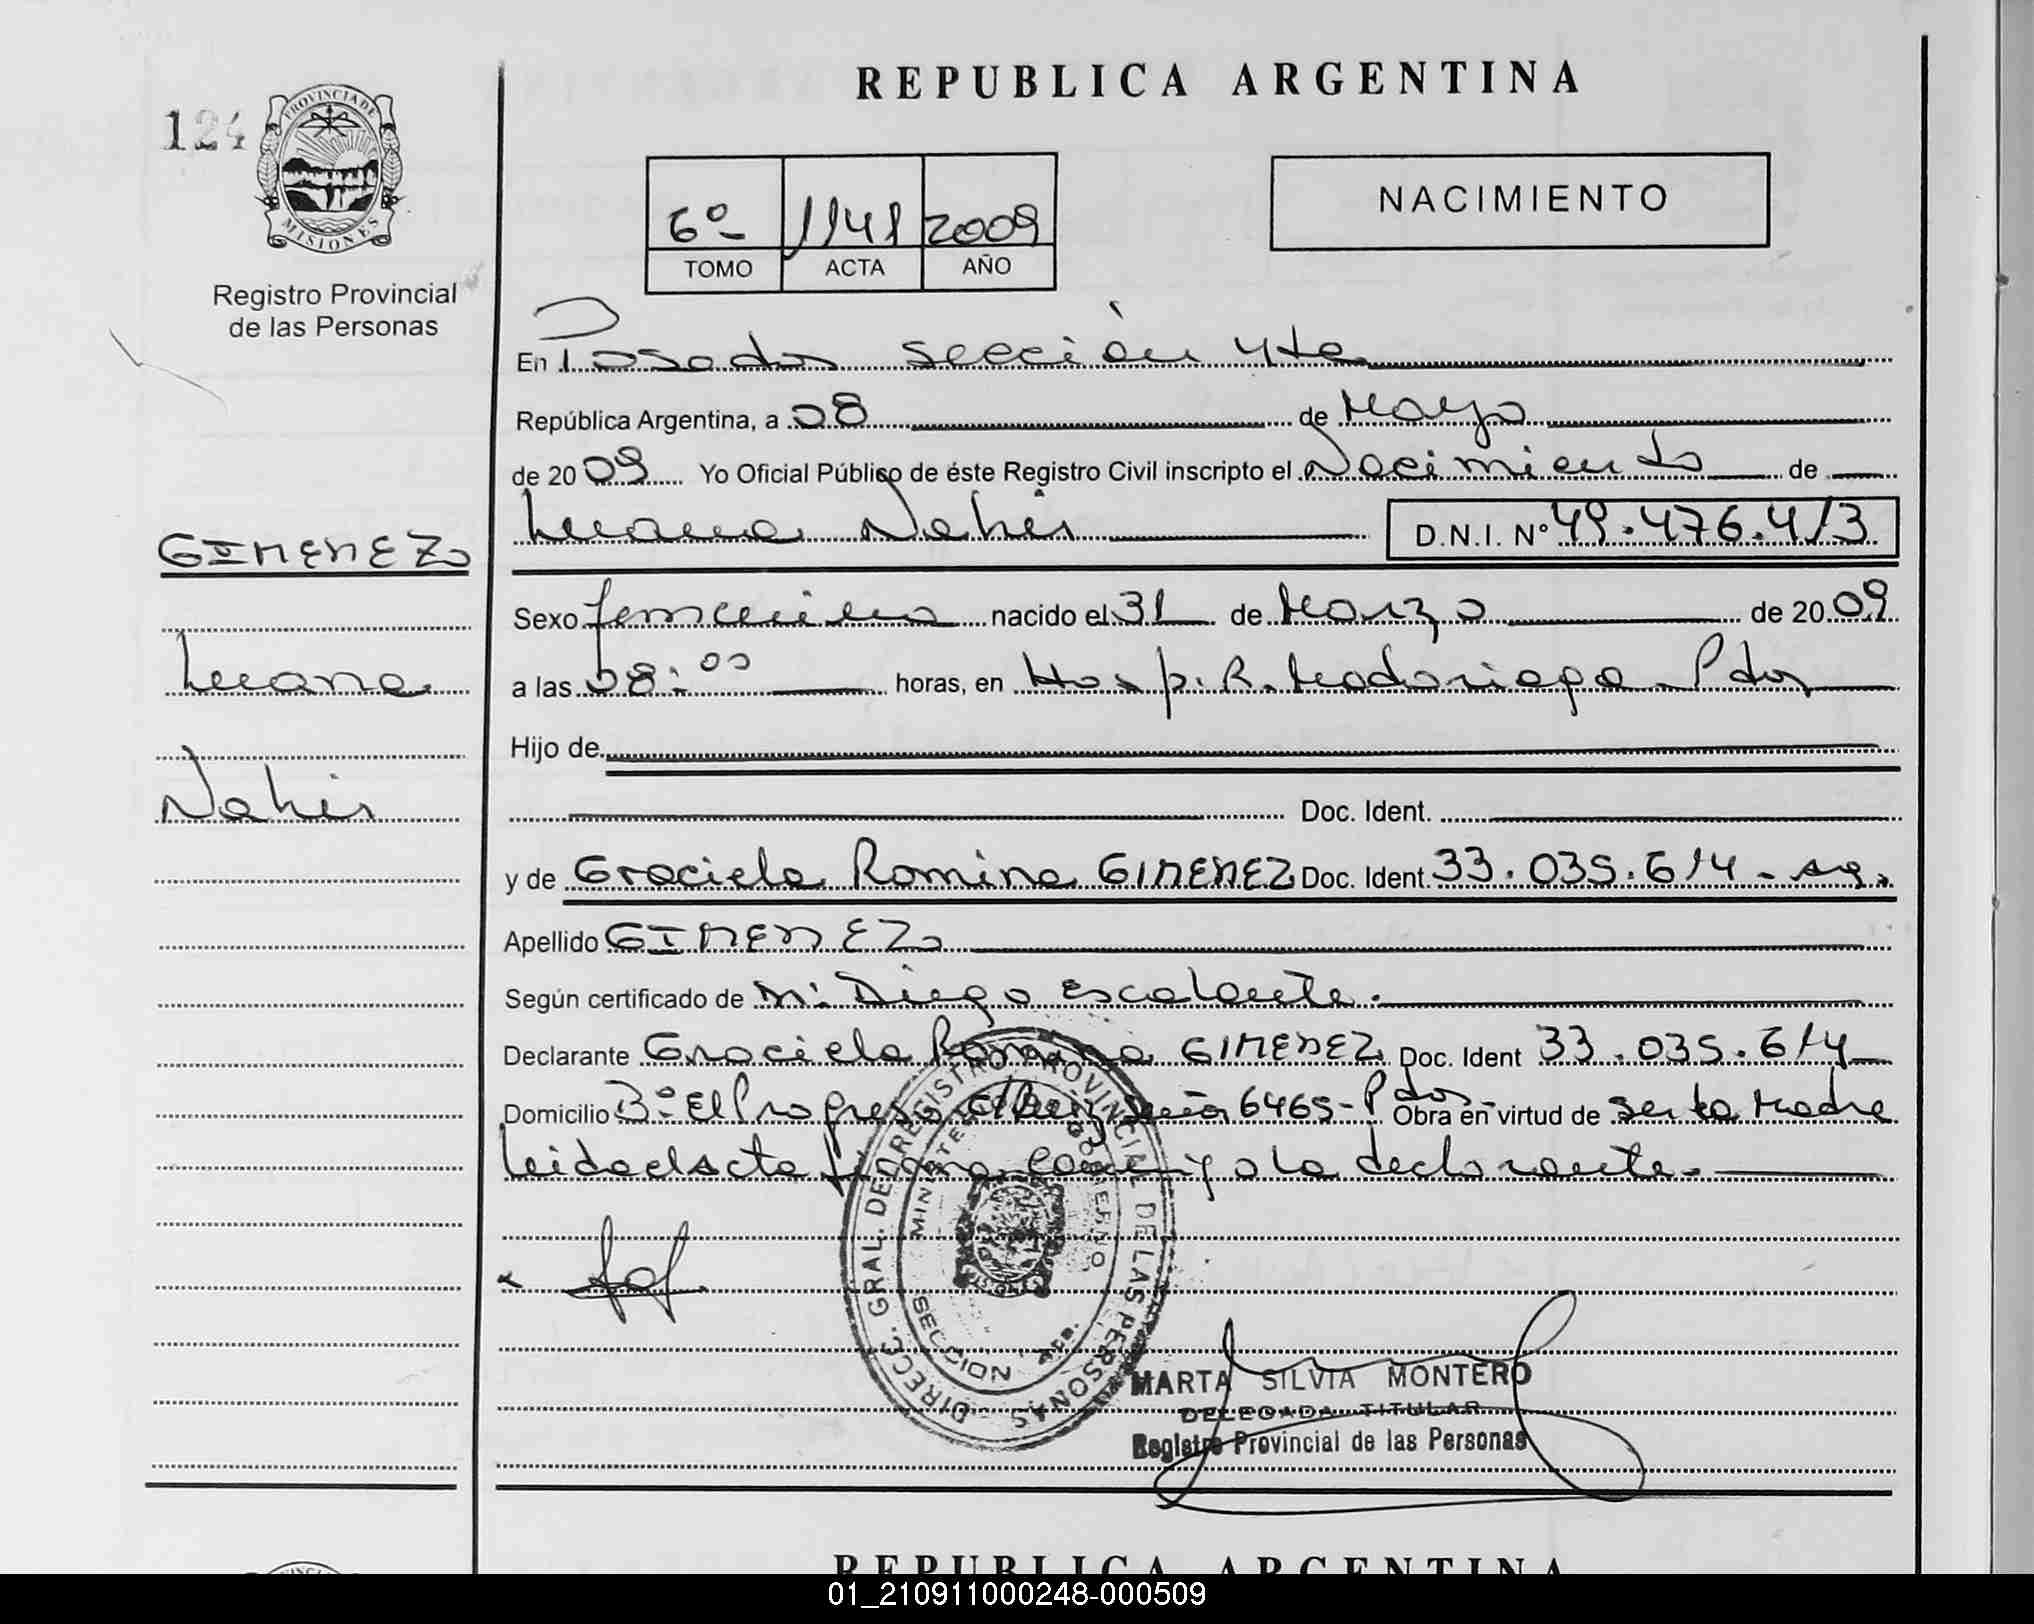 REPUBLICA ARGENTINA
124
PROVINCIA DE
MISIONES
Registro Provincial
de las Personas
6º 1141 2009
TOMO ACTA AÑO
NACIMIENTO
En Posadas sección 4ta
República Argentina, a 08 de Mayo
de 2009 Yo Oficial Público de éste Registro Civil inscripto el Nacimiento de
Luana Nahir D.N.I. Nº 49.476.413
GIMENEZ
Luana
Nahir
Sexo femenino nacido el 31 de Marzo de 2009
a las 08:00 horas, en Hosp. R. Madariaga Pdas
Hijo de
Doc. Ident.
y de Graciela Romina GIMENEZ Doc. Ident. 33.035.614 - Ag.
Apellido GIMENEZ
Según certificado de M: Diego Escalante.
Declarante Graciela Romina GIMENEZ Doc. Ident 33.035.614
Domicilio Bº El Progreso 6465 - Pdas - Obra en virtud de ser la Madre
Leida el acta firma conmigo la declarante.
DIRECC. GRAL. DEL REGISTRO PROVINCIAL DE LAS PERSONAS
MINISTERIO DE GOBIERNO
SECCION 4ta.
MARTA SILVIA MONTERO
DELEGADA TITULAR
Registro Provincial de las Personas
REPUBLICA ARGENTINA
01_210911000248-000509